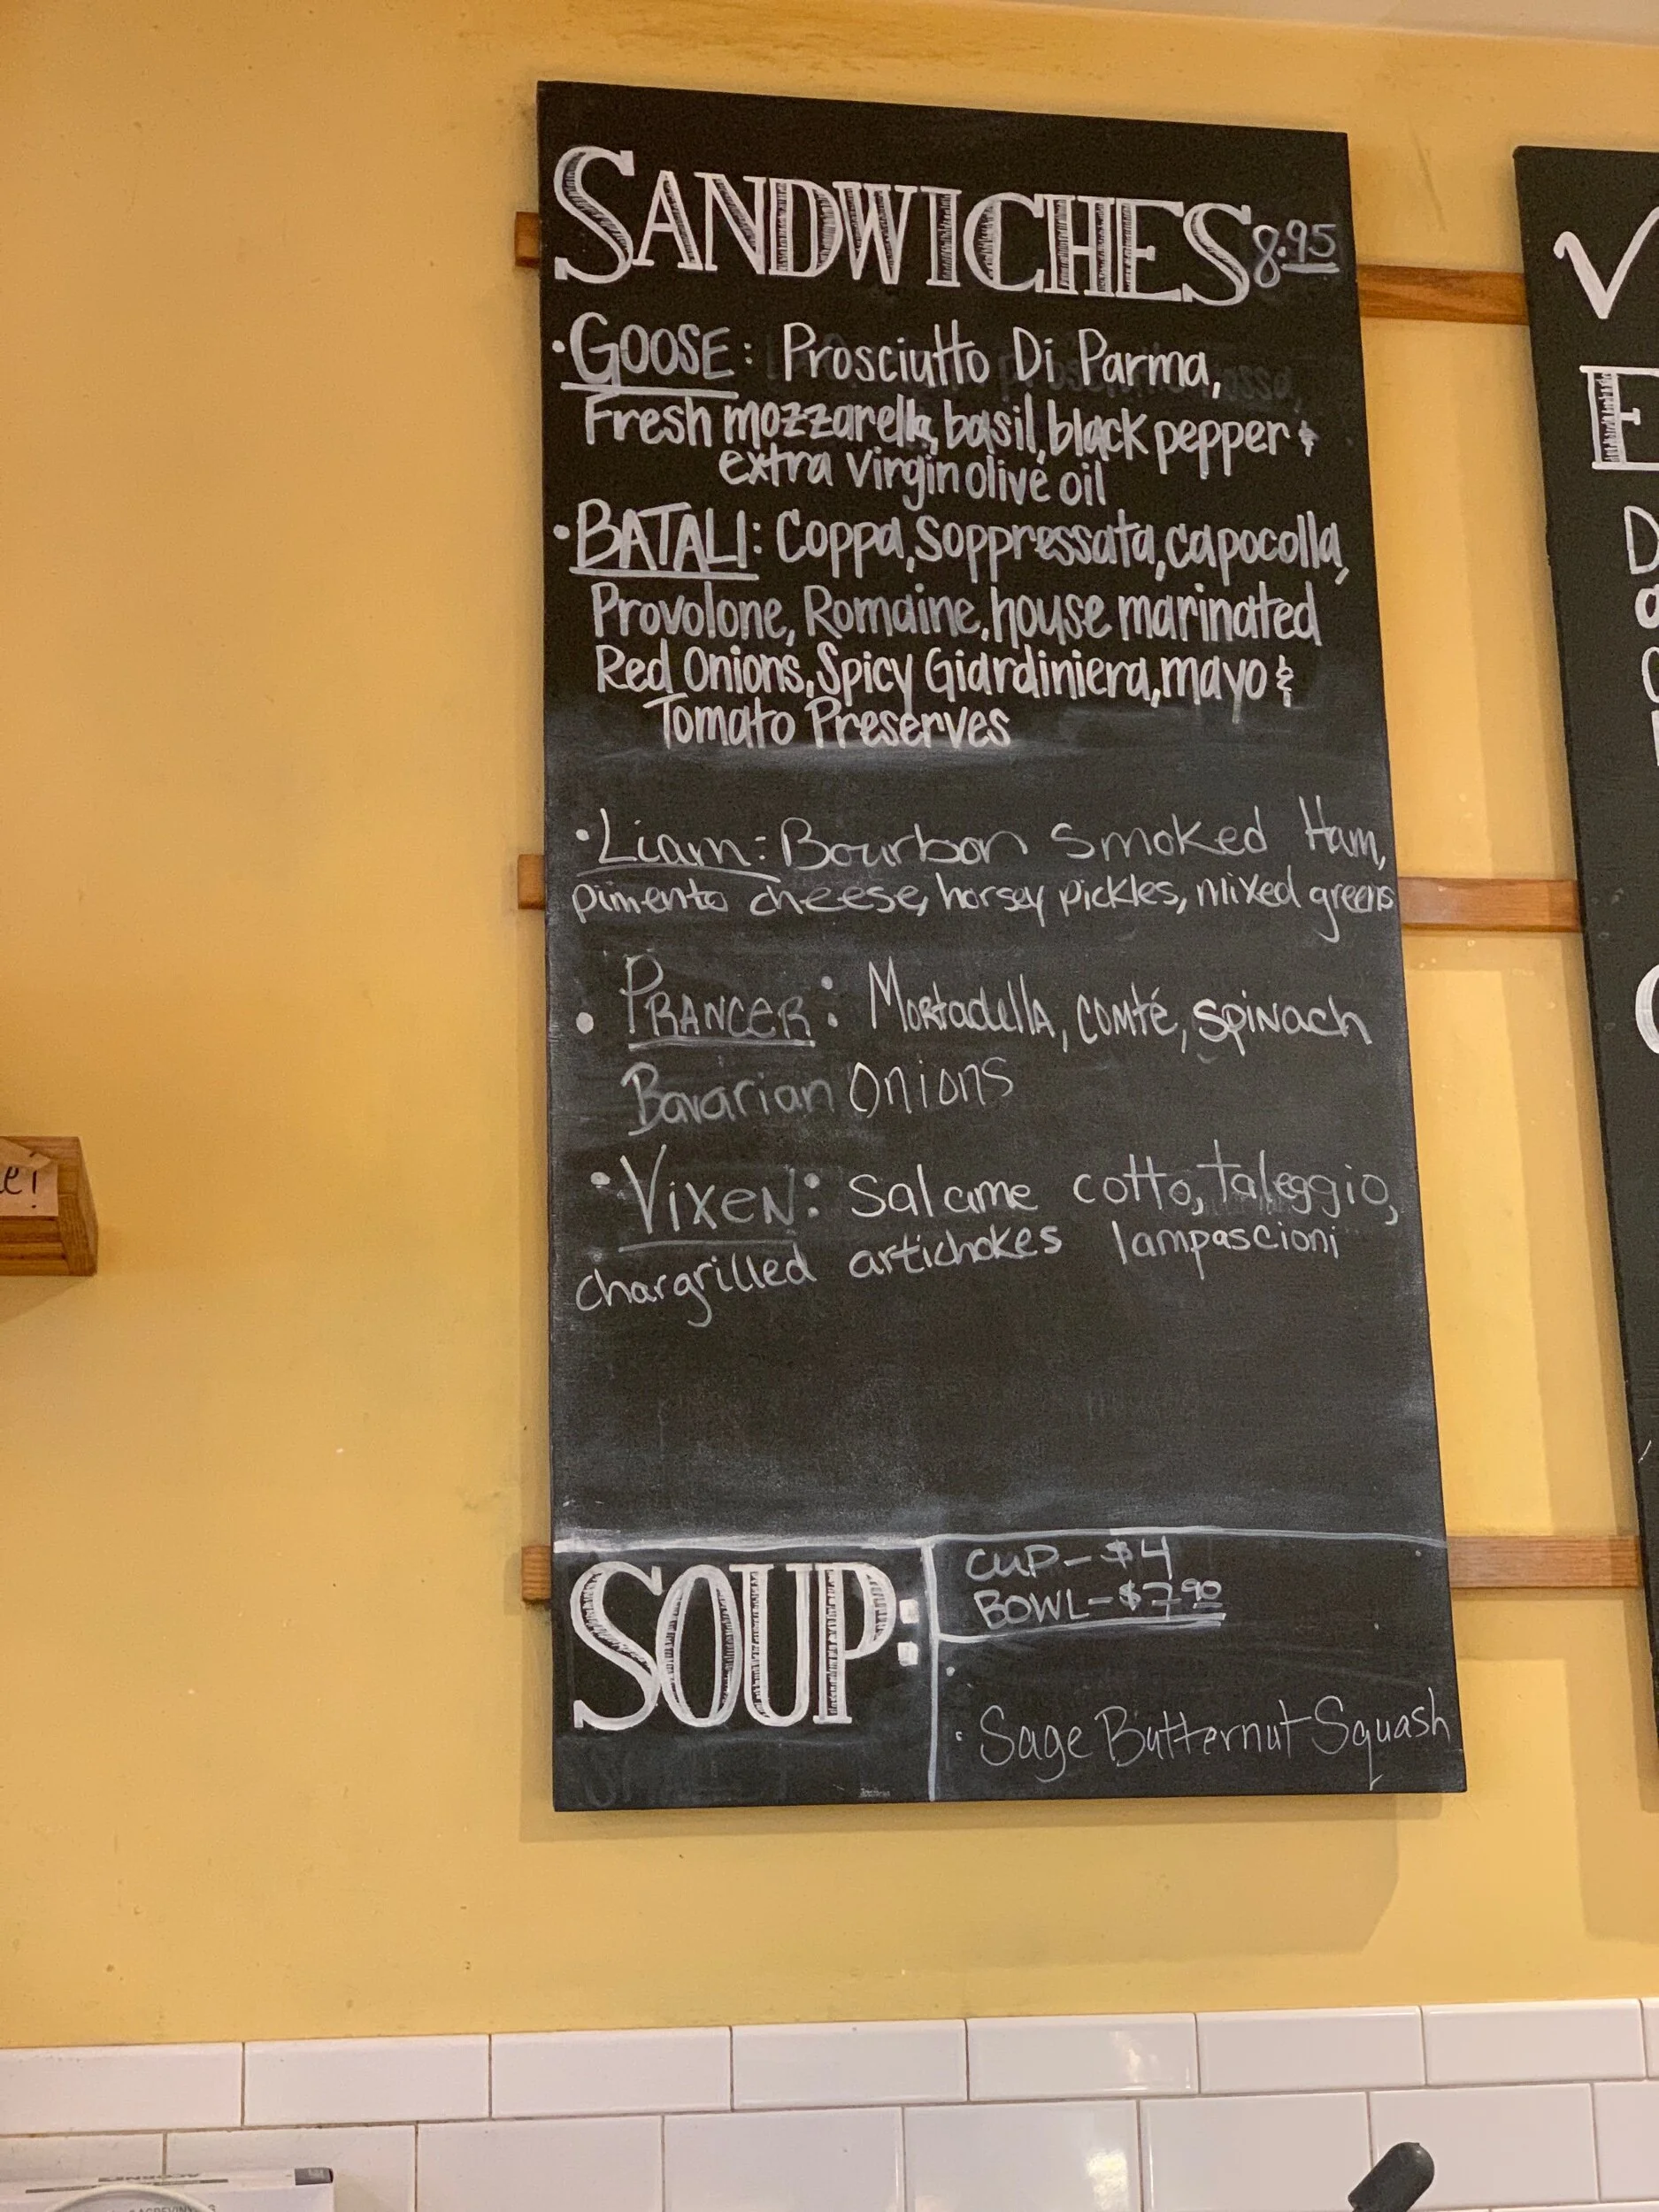 SANDWICHES 8.95
• GOOSE: Prosciutto Di Parma,
Fresh mozzarella, basil, black pepper &
extra virgin olive oil
• BATALI: Coppa, Soppressata, capocolla,
Provolone, Romaine, house marinated
Red Onions, Spicy Giardiniera, mayo &
Tomato Preserves
• Liam: Bourbon Smoked Ham,
pimento cheese, horsey pickles, mixed greens
• PRANCER: Mortadella, comté, spinach
Bavarian Onions
• Vixen: Salame cotto, taleggio,
chargrilled artichokes lampascioni
SOUP:
CUP - $4
BOWL - $7.90
• Sage Butternut Squash